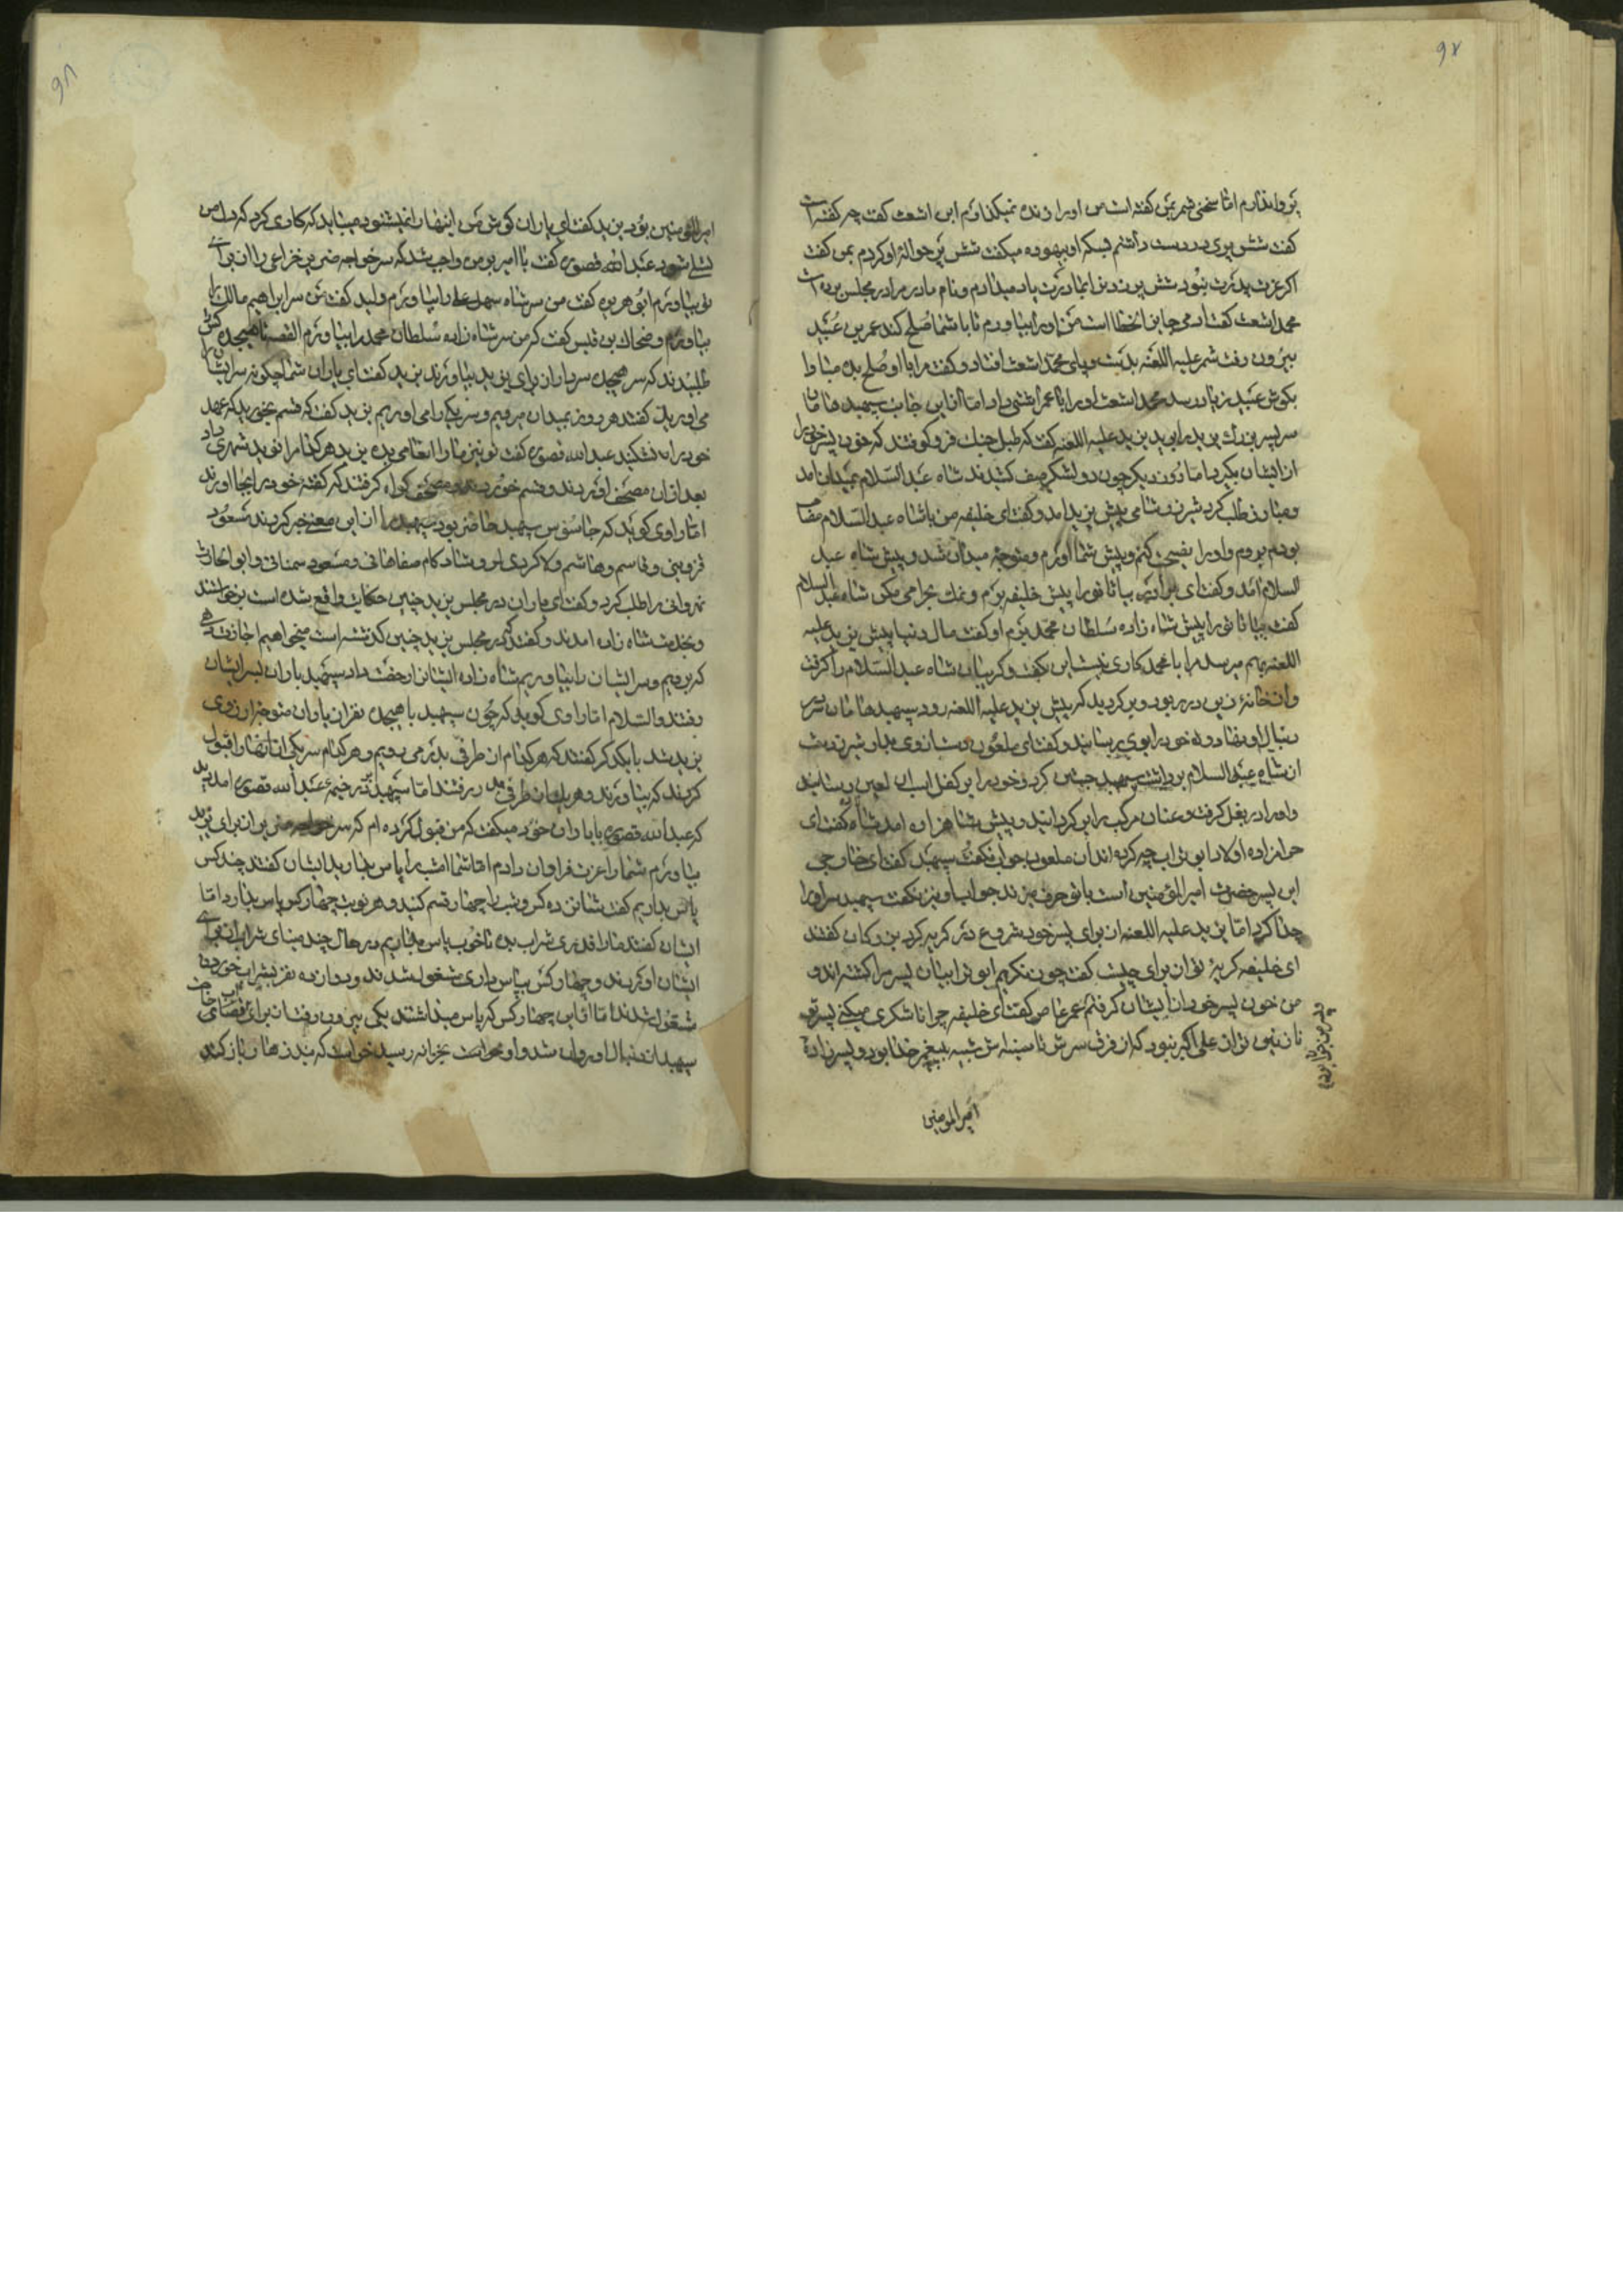 ۹۷
اما سخنی شمر بمن گفته است من او را زنده نمیگذارم ابن اشعث گفت چه گفته است
گفت شش پری در دست داشتم او بیهوده میگفت شش پر حوالهٔ او کردم بمن گفت
اگر عزت پدرت نبود شش پر و نام مادر مرا در مجلس برده است
محمد اشعث گفت خطا است من او را بیاورم تا با شما صلح کند عمر بن عبید
بیرون رفت شمر علیه اللعنه و پای محمد اشعث افتاد و گفت مرا با او صلح بده مبادا
بگوش عبید زیاد رسد محمد اشعث او را با عمر آشتی داد اما از این جانب سپهبد هامان
سر پسر بزرگ یزید را یزید علیه اللعنه گفت که طبل جنگ فرو کوفتند که خون پسر خود را
از ایشان بگیرد اما روز دیگر چون دو لشکر صف کشیدند شاه عبد السلام بمیدان آمد
و مبارز طلب کرد شامی پیش یزید آمد و گفت ای خلیفه من با شاه عبد السلام مصاحب
بودم بروم و او را نصیحت کنم و پیش شما آورم و متوجه میدان شد و پیش شاه عبد
السلام آمد و گفت ای برادر بیا تا تو را پیش خلیفه برم و نمک بحرامی مکن شاه عبد السلام
گفت بیا تا تو را پیش شاه زاده سلطان محمد برم او گفت مال دنیا پیش یزید علیه
اللعنه بهم میرسد مرا با محمد کاری نیست این بگفت و گریبان شاه عبد السلام را گرفت
و از خانهٔ زین در ربود و برگردید که پیش یزید علیه اللعنه رود سپهبد هامان
دنبال او نهاد و خود را بوی رسانید و گفت ای ملعون
شاه عبد السلام برداشت سپهبد جستن کرد و خود را بر کفل اسب لعین رسانید
و او را در بغل گرفت و عنان مرکب را برگردانید و پیش شاهزاده آمد شاه گفت ای
حرامزاده اولاد ابو تراب چه کرده اند آن ملعون جواب نگفت سپهبد گفت ای خارجی
این پسر حضرت امیر المؤمنین است با تو حرف میزند جواب او نیز نگفت سپهبد سر او را
جدا کرد اما یزید علیه اللعنه از برای پسر خود شروع در گریه کرد بزرگان گفتند
ای خلیفه گریهٔ تو از برای چیست گفت چون نگریم ابو ترابیان پسر مرا کشته اند و
من خون پسر خود از ایشان گرفتم عمر عاص گفت ای خلیفه چرا ناشکری میکنی پسر تو
نازنین تر از علی اکبر نبود که از فرق سرش تا سینه اش شبیه پیغمبر خدا بود و پسر زادهٔ
امیر المومنین
۹۸
امیر المؤمنین بود یزید گفت ای یاران گوش من اینها را نمیشنود میباید که کاری کرد که دل من
تسلی شود عبد الله قصوری گفت یا امیر بر من واجب شد که سر خواجه خزاعی را از برای
تو بیاورم ابو هریره گفت من سر شاه سهل علی را بیاورم ولید گفت من سر ابراهیم مالک را
بیاورم و ضحاک بن قیس گفت که من سر شاه زاده سلطان محمد را بیاورم القصه تا هیجده کس
طلبیدند که سر هیجده سردار از برای یزید بیاورند یزید گفت ای یاران شما چگونه سر ایشان را
می آورید گفتند هر روز بمیدان میرویم و سر یکی را می آوریم یزید گفت که قسم بخورید که عهد
خود را نشکنید عبد الله قصوری گفت تو نیز ما را انعامی بده یزید هر کدام را نوید شهری داد
بعد از آن مصحف آوردند و قسم خوردند و مصحف گواه گرفتند که گفتهٔ خود را بجا آورند
اما راوی گوید که جاسوس سپهبد حاضر بود سپهبد را از این معنی خبر کردند مسعود
قزوینی و قاسم و هاشم و مسعود سمنانی و ابو الحارث
نهروانی را طلب کرد و گفت ای یاران در مجلس یزید چنین حکایت واقع شده است برخاستند
و بخدمت شاه زاده آمدند و گفتند که در مجلس یزید چنین گذشته است میخواهیم اجازت دهی
که برویم و سر ایشان را بیاوریم شاه زاده ایشان را رخصت داد سپهبد با یاران بسر ایشان
رفتند والسلام اما راوی گوید که چون سپهبد با هیجده نفر از یاران متوجه اردوی
یزید شد با یکدیگر گفتند که هر کدام از طرفی بدر می رویم و هر کدام سر یکی از آنها را قبول
کردند که بیاورند و هر یک از طرفی در رفتند اما سپهبد بدر خیمهٔ عبد الله قصوری آمد دید
که عبد الله قصوری با یاران خود میگفت که من قبول کرده ام که سر خواجه از برای یزید
بیاورم شما را عزت فراوان دادم اما شما امشب را پاس بدارید ایشان گفتند چند کس
پاس بداریم گفت شانزده کس و شب را چهار قسم کنید و هر نوبت چهار کس پاس بدارد اما
ایشان گفتند ما را قدری شراب بده تا خوب پاس بداریم در حال چند مینای شراب از برای
ایشان آوردند و چهار کس بپاس داری مشغول شدند و دوازده نفر بشراب خوردن
مشغول شدند اما از این چهار کس که پاس میداشتند یکی بیرون رفت از برای قضای حاجت
سپهبد از دنبال او روان شد و او بخرابه رسید خواست که بند ازار باز کند